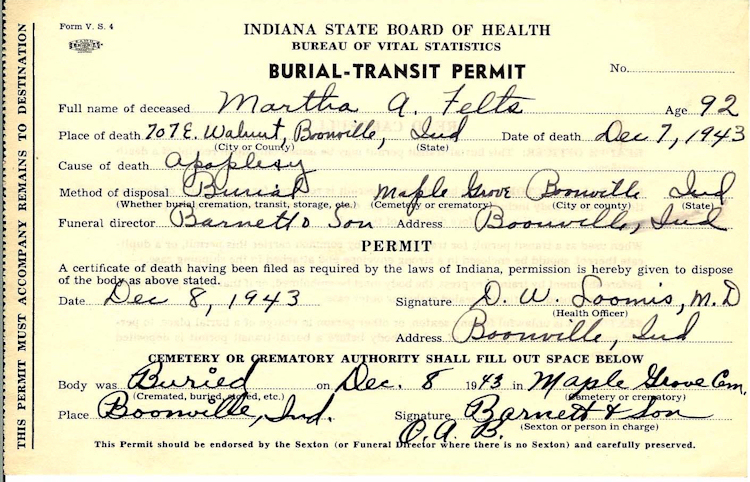 Form V. S. 4
INDIANA STATE BOARD OF HEALTH
BUREAU OF VITAL STATISTICS
BURIAL-TRANSIT PERMIT
No.
Full name of deceased Martha A. Felts Age 92
Place of death 707 E. Walnut, Boonville, Ind Date of death Dec 7, 1943
(City or County) (State)
Cause of death apoplesy
Method of disposal Burial Maple Grove Boonville Ind
(Whether burial cremation, transit, storage, etc.) (Cemetery or crematory) (City or county) (State)
Funeral director Barnett & Son Address Boonville, Ind
PERMIT
A certificate of death having been filed as required by the laws of Indiana, permission is hereby given to dispose
of the body as above stated.
Date Dec 8, 1943 Signature D. W. Loomis, M. D
(Health Officer)
Address Boonville, Ind
CEMETERY OR CREMATORY AUTHORITY SHALL FILL OUT SPACE BELOW
Body was Buried on Dec. 8 1943 in Maple Grove Cem.
(Cremated, buried, stored, etc.) (Cemetery or crematory)
Place Boonville, Ind. Signature Barnett & Son
(Sexton or person in charge)
O. A. B.
This Permit should be endorsed by the Sexton (or Funeral Director where there is no Sexton) and carefully preserved.
THIS PERMIT MUST ACCOMPANY REMAINS TO DESTINATION